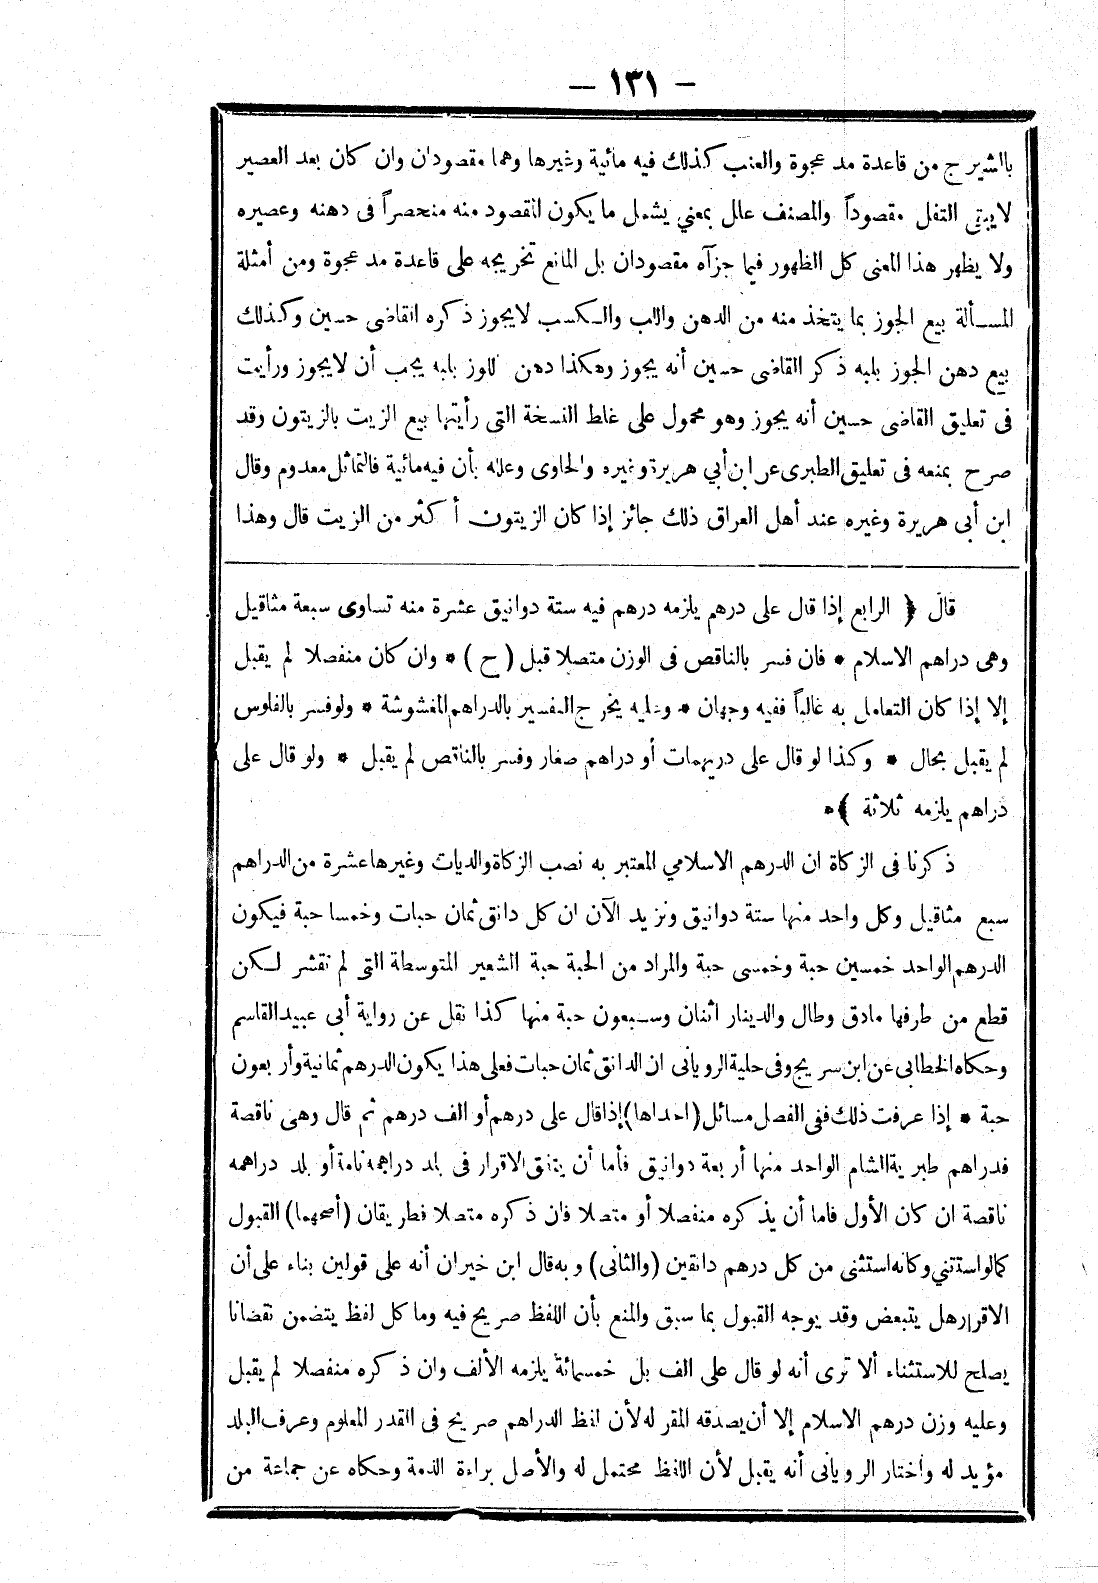 — ١٣١ —
بالشيرج من قاعدة مد عجوة والعنب كذلك فيه مائية وغيرها وهما مقصودان وان كان بعد العصير
لايبقى التفل مقصوداً والمصنف علل بمعنى يشمل ما يكون المقصود منه منحصراً فى دهنه وعصيره
ولا يظهر هذا المعنى كل الظهور فيما جزآه مقصودان بل المانع تخريجه على قاعدة مد عجوة ومن أمثلة
المسألة بيع الجوز بما يتخذ منه من الدهن واللب والكسب لايجوز ذكره القاضى حسين وكذلك
بيع دهن الجوز بلبه ذكر القاضى حسين أنه يجوز وهكذا دهن اللوز بلبه يجب أن لايجوز ورأيت
فى تعليق القاضى حسين أنه يجوز وهو محمول على غلط النسخة التى رأيتها بيع الزيت بالزيتون وقد
صرح بمنعه فى تعليق الطبرى عن ابن أبي هريرة وغيره والحاوى وعلله بأن فيه مائية فالتماثل معدوم وقال
ابن أبى هريرة وغيره عند أهل العراق ذلك جائز إذا كان الزيتون أكثر من الزيت قال وهذا
قال ﴿ الرابع إذا قال على درهم يلزمه درهم فيه ستة دوانيق عشرة منه تساوى سبعة مثاقيل
وهى دراهم الاسلام * فان فسر بالناقص فى الوزن متصلا قبل (ح) * وان كان منفصلا لم يقبل
إلا إذا كان التعامل به غالباً ففيه وجهان * وعليه يخرج التفسير بالدراهم المغشوشة * ولوفسر بالفلوس
لم يقبل بحال * وكذا لو قال على دريهمات أو دراهم صغار وفسر بالناقص لم يقبل * ولو قال على
دراهم يلزمه ثلاثة ﴾*
ذكرنا فى الزكاة ان الدرهم الاسلامي المعتبر به نصب الزكاة والديات وغيرها عشرة من الدراهم
سبع مثاقيل وكل واحد منها ستة دوانيق ونزيد الآن ان كل دانق ثمان حبات وخمسا حبة فيكون
الدرهم الواحد خمسين حبة وخمسى حبة والمراد من الحبة حبة الشعير المتوسطة التى لم تقشر لكن
قطع من طرفها مادق وطال والدينار اثنان وسبعون حبة منها كذا نقل عن رواية أبى عبيد القاسم
وحكاه الخطابى عن ابن سريج وفى حلية الرويانى ان الدانق ثمان حبات فعلى هذا يكون الدرهم ثمانية وأربعون
حبة * إذا عرفت ذلك ففى الفصل مسائل (احداها) إذا قال على درهم أو الف درهم ثم قال وهى ناقصة
فدراهم طبرية الشام الواحد منها أربعة دوانيق فأما أن يتفق الاقرار فى بلد دراهمه تامة أو بلد دراهمه
ناقصة ان كان الأول فاما أن يذكره منفصلا أو متصلا فان ذكره متصلا فطريقان (أصحهما) القبول
كما لواستثني وكأنه استثنى من كل درهم دانقين (والثانى) وبه قال ابن خيران أنه على قولين بناء على أن
الاقرار هل يتبعض وقد يوجه القبول بما سبق والمنع بأن اللفظ صريح فيه وما كل لفظ يتضمن نقصانا
يصلح للاستثناء ألا ترى أنه لو قال على الف بل خمسمائة يلزمه الألف وان ذكره منفصلا لم يقبل
وعليه وزن درهم الاسلام إلا أن يصدقه المقر له لأن لفظ الدراهم صريح فى القدر المعلوم وعرف البلد
مؤيد له واختار الرويانى أنه يقبل لأن اللفظ محتمل له والأصل براءة الذمة وحكاه عن جماعة من